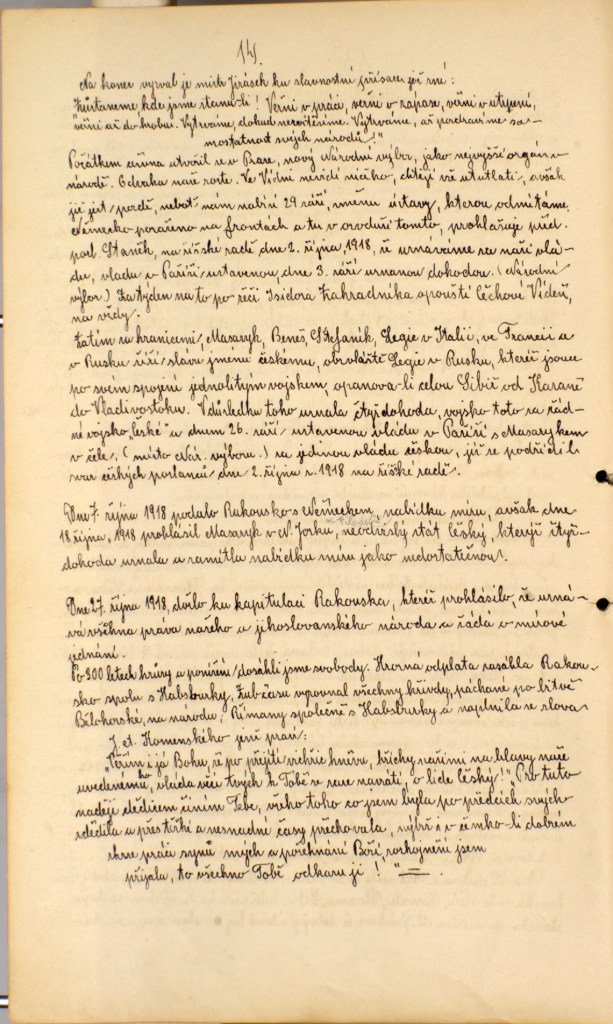 14.
Na konec vyzval je mistr Jirásek ku slavnostní přísaze, jež zní:
Zůstaneme, kde jsme stanu-li! Věrni v práci, věrni v zápase, věrni v utrpení,
věrni až do hrobu. Vytrváme, dokud nezvítězíme. Vytrváme, až pozdravíme sa-
mostatnost svých národů!"
Počátkem srpna utvořil se v Praze, nový Národní výbor, jako nejvyšší orgán v
národě. Odvaha naše roste. Ve Vídni nevědí ničeho, chtějí vše ututlati, avšak
již jest pozdě, neboť nám nabízí 29 září, změnu ústavy, kterou odmítáme.
Německo poraženo na frontách a tu v ovzduší tomto, prohlašuje před.
posl. Staněk, na říšské radě dne 2. října, 1918, že uznáváme za naši vlá-
du, vládu v Paříži ustavenou, dne 3. září uznanou dohodou. (Národní
výbor.) Za týden na to po řeči Isidora Zahradníka opouští Čechové Vídeň,
na vždy.
Zatím za hranicemi, Masaryk, Beneš, Štefaník, Legie v Italii, ve Francii a
v Rusku šíří slávu jménu českému, obzvláště Legie v Rusku, kteréž jsouce
po svém spojení jednolitým vojskem, opanova-li celou Sibiř od Kazaně
do Vladivostoku. V důsledku toho uznala čtyřdohoda, vojsko toto za řád-
né vojsko „České" a dnem 26. září ustavenou vládu v Paříži s Masarykem
v čele, (místo Nár. výboru.) za jedinou vládu českou, jíž se podřídil i
svaz českých poslanců dne 2. října r. 1918 na říšské radě.
Dne 7. října 1918 podalo Rakousko s Německem, nabídku míru, avšak dne
18 října, 1918 prohlásil Masaryk v N. Jorku, neodvislý stát Český, kterýž čtyř-
dohoda uznala a zamítla nabídku míru jako nedostatečnou.
Dne 27. října 1918, došlo ku kapitulaci Rakouska, kteréž prohlásilo, že uzná-
vá všechna práva našeho a jihoslovanského národa a žádá o mírové
jednání.
Po 300 letech hrůzy a ponížení dosáhli jsme svobody. Hrozná odplata zasáhla Rakou-
sko spolu s Habsburky. Zub času vyrovnal všechny křivdy, páchané po bitvě
Bělohorské, na národu, Římany společně s Habsburky a naplnila se slova
J. A. Komenského jenž praví:
„Věřím i já Bohu, že po přejití vichřic hněvu, hříchy našimi na hlavy naše
uvedeného, vláda věcí tvých k Tobě se zase navrátí, o lide český!" „Pro tuto
naději dědicem činím Tebe, všeho toho co jsem byla po předcích svých
zdědila a přes těžké a nesnadné časy přechovala, nýbrž i v čemko-li dobrém
skrze práci synů mých a požehnání Boží, rozhojnění jsem
přijala, to všechno Tobě odkazuji! "